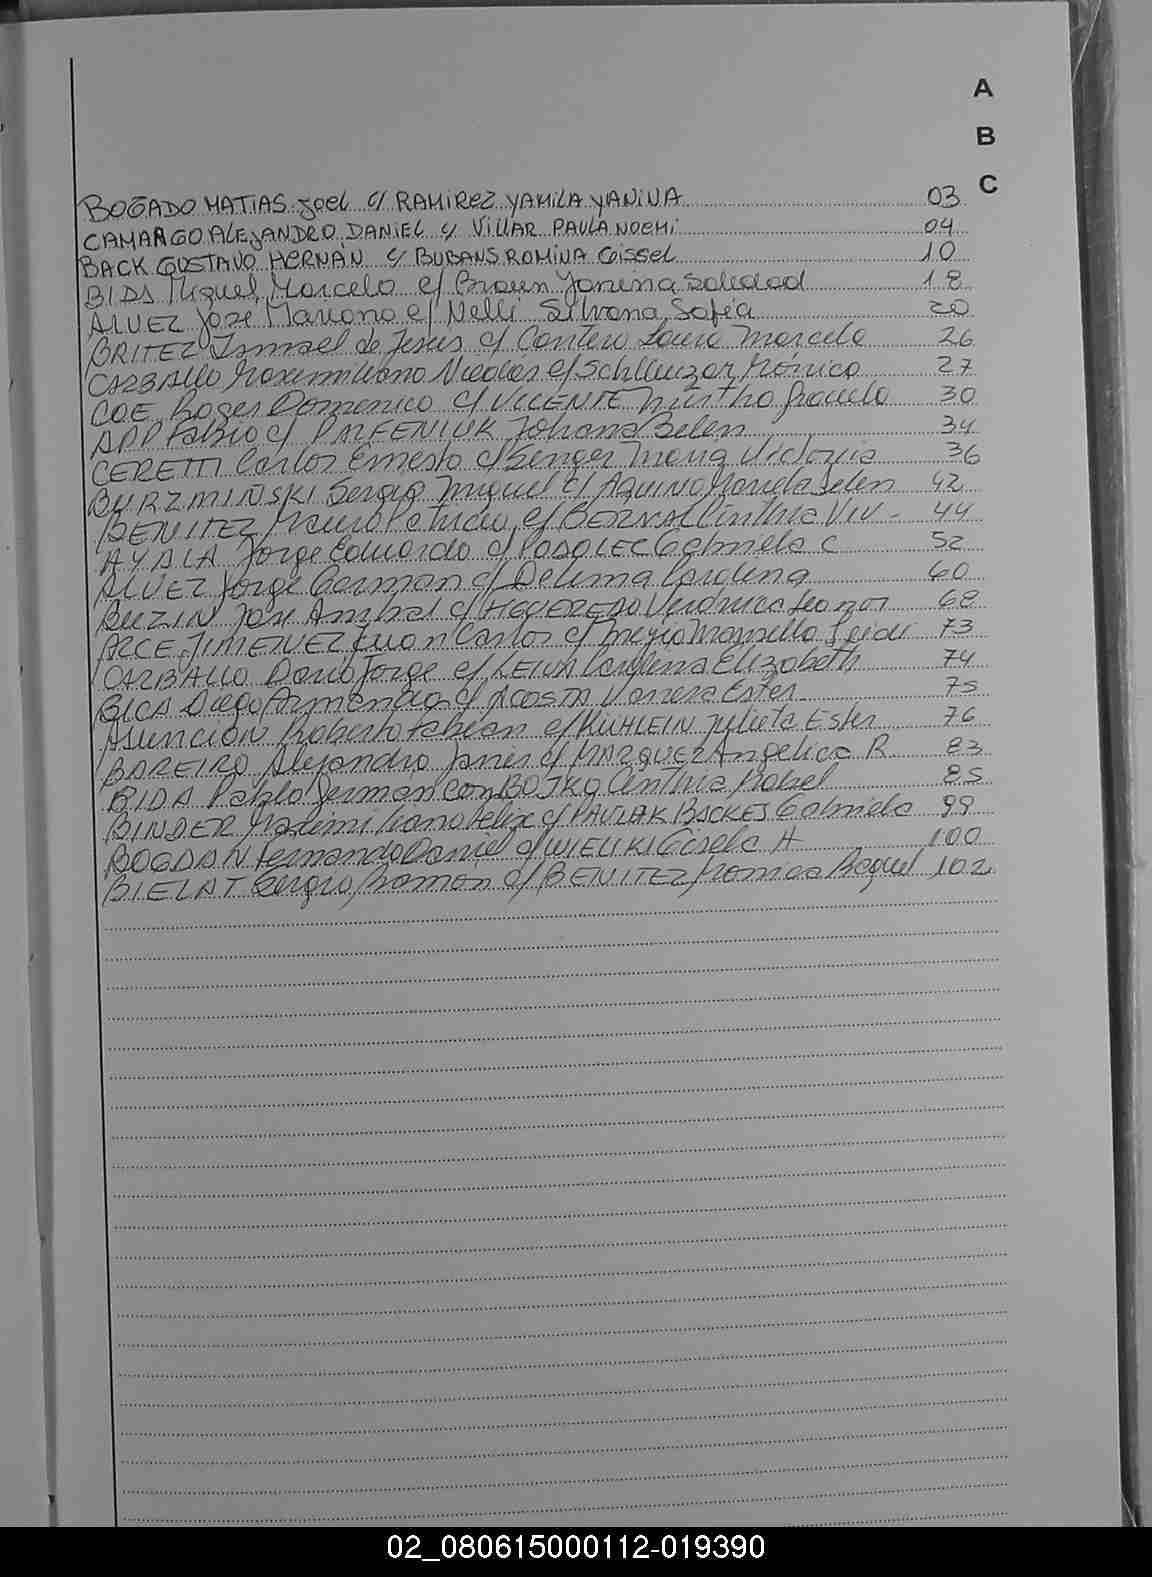 A
B
C
BOGADO MATIAS Joel c/ RAMIREZ YAMILA YANINA 03
CAMARGO ALEJANDRO DANIEL c/ VILLAR PAULA NOEMI 04
BACK GUSTAVO HERNAN c/ BUBANS ROMINA Gissel 10
BIDA Miguel Marcelo c/ Braun Yanina Soledad 18
ALVEZ Jose Mariano c/ Nelli Silvana Sofia 20
BRITEZ Ismael de Jesus c/ Laura Marcela 26
CARBALLO Maximiliano Nicolas c/ Mónica 27
COE Roger Domenico c/ VICENTE Mirtha Graciela 30
APP Fabio c/ PARFENIUK Johana Belen 34
CERETTI Carlos Ernesto c/ Senger Maria Victoria 36
BURZMINSKI Sergio Miguel c/ AQUINO Mariela Belen 42
BENITEZ Mauro Patricio c/ BERNAL Cinthia Viv - 44
AYALA Jorge Eduardo c/ PODOLEC Gabriela C 52
ALVEZ Jorge German c/ Delima Carolina 60
BUZIN Jose Anibal c/ FIGUEREDO Veronica Leonor 68
ARCE JIMENEZ Juan Carlos c/ Marisella 73
CARBALLO Dario Jorge c/ LEIVA Carolina Elizabeth 74
BICA Diego Armando c/ ACOSTA Vanesa Ester 75
Asuncion Roberto Fabian c/ KUHLEIN Julieta Ester 76
BAREIRO Alejandro Javier c/ MARQUEZ Angelica R 83
BIDA Pablo German con BOJKO Cinthia Mabel 85
BINDER Maximiliano Felix c/ PAVLAK BACKES Gabriela 99
BOGDAN Fernando Daniel c/ WIELIKI Gisela H 100
BIELAT Sergio Ramon c/ BENITEZ Monica Raquel 102
02_080615000112-019390